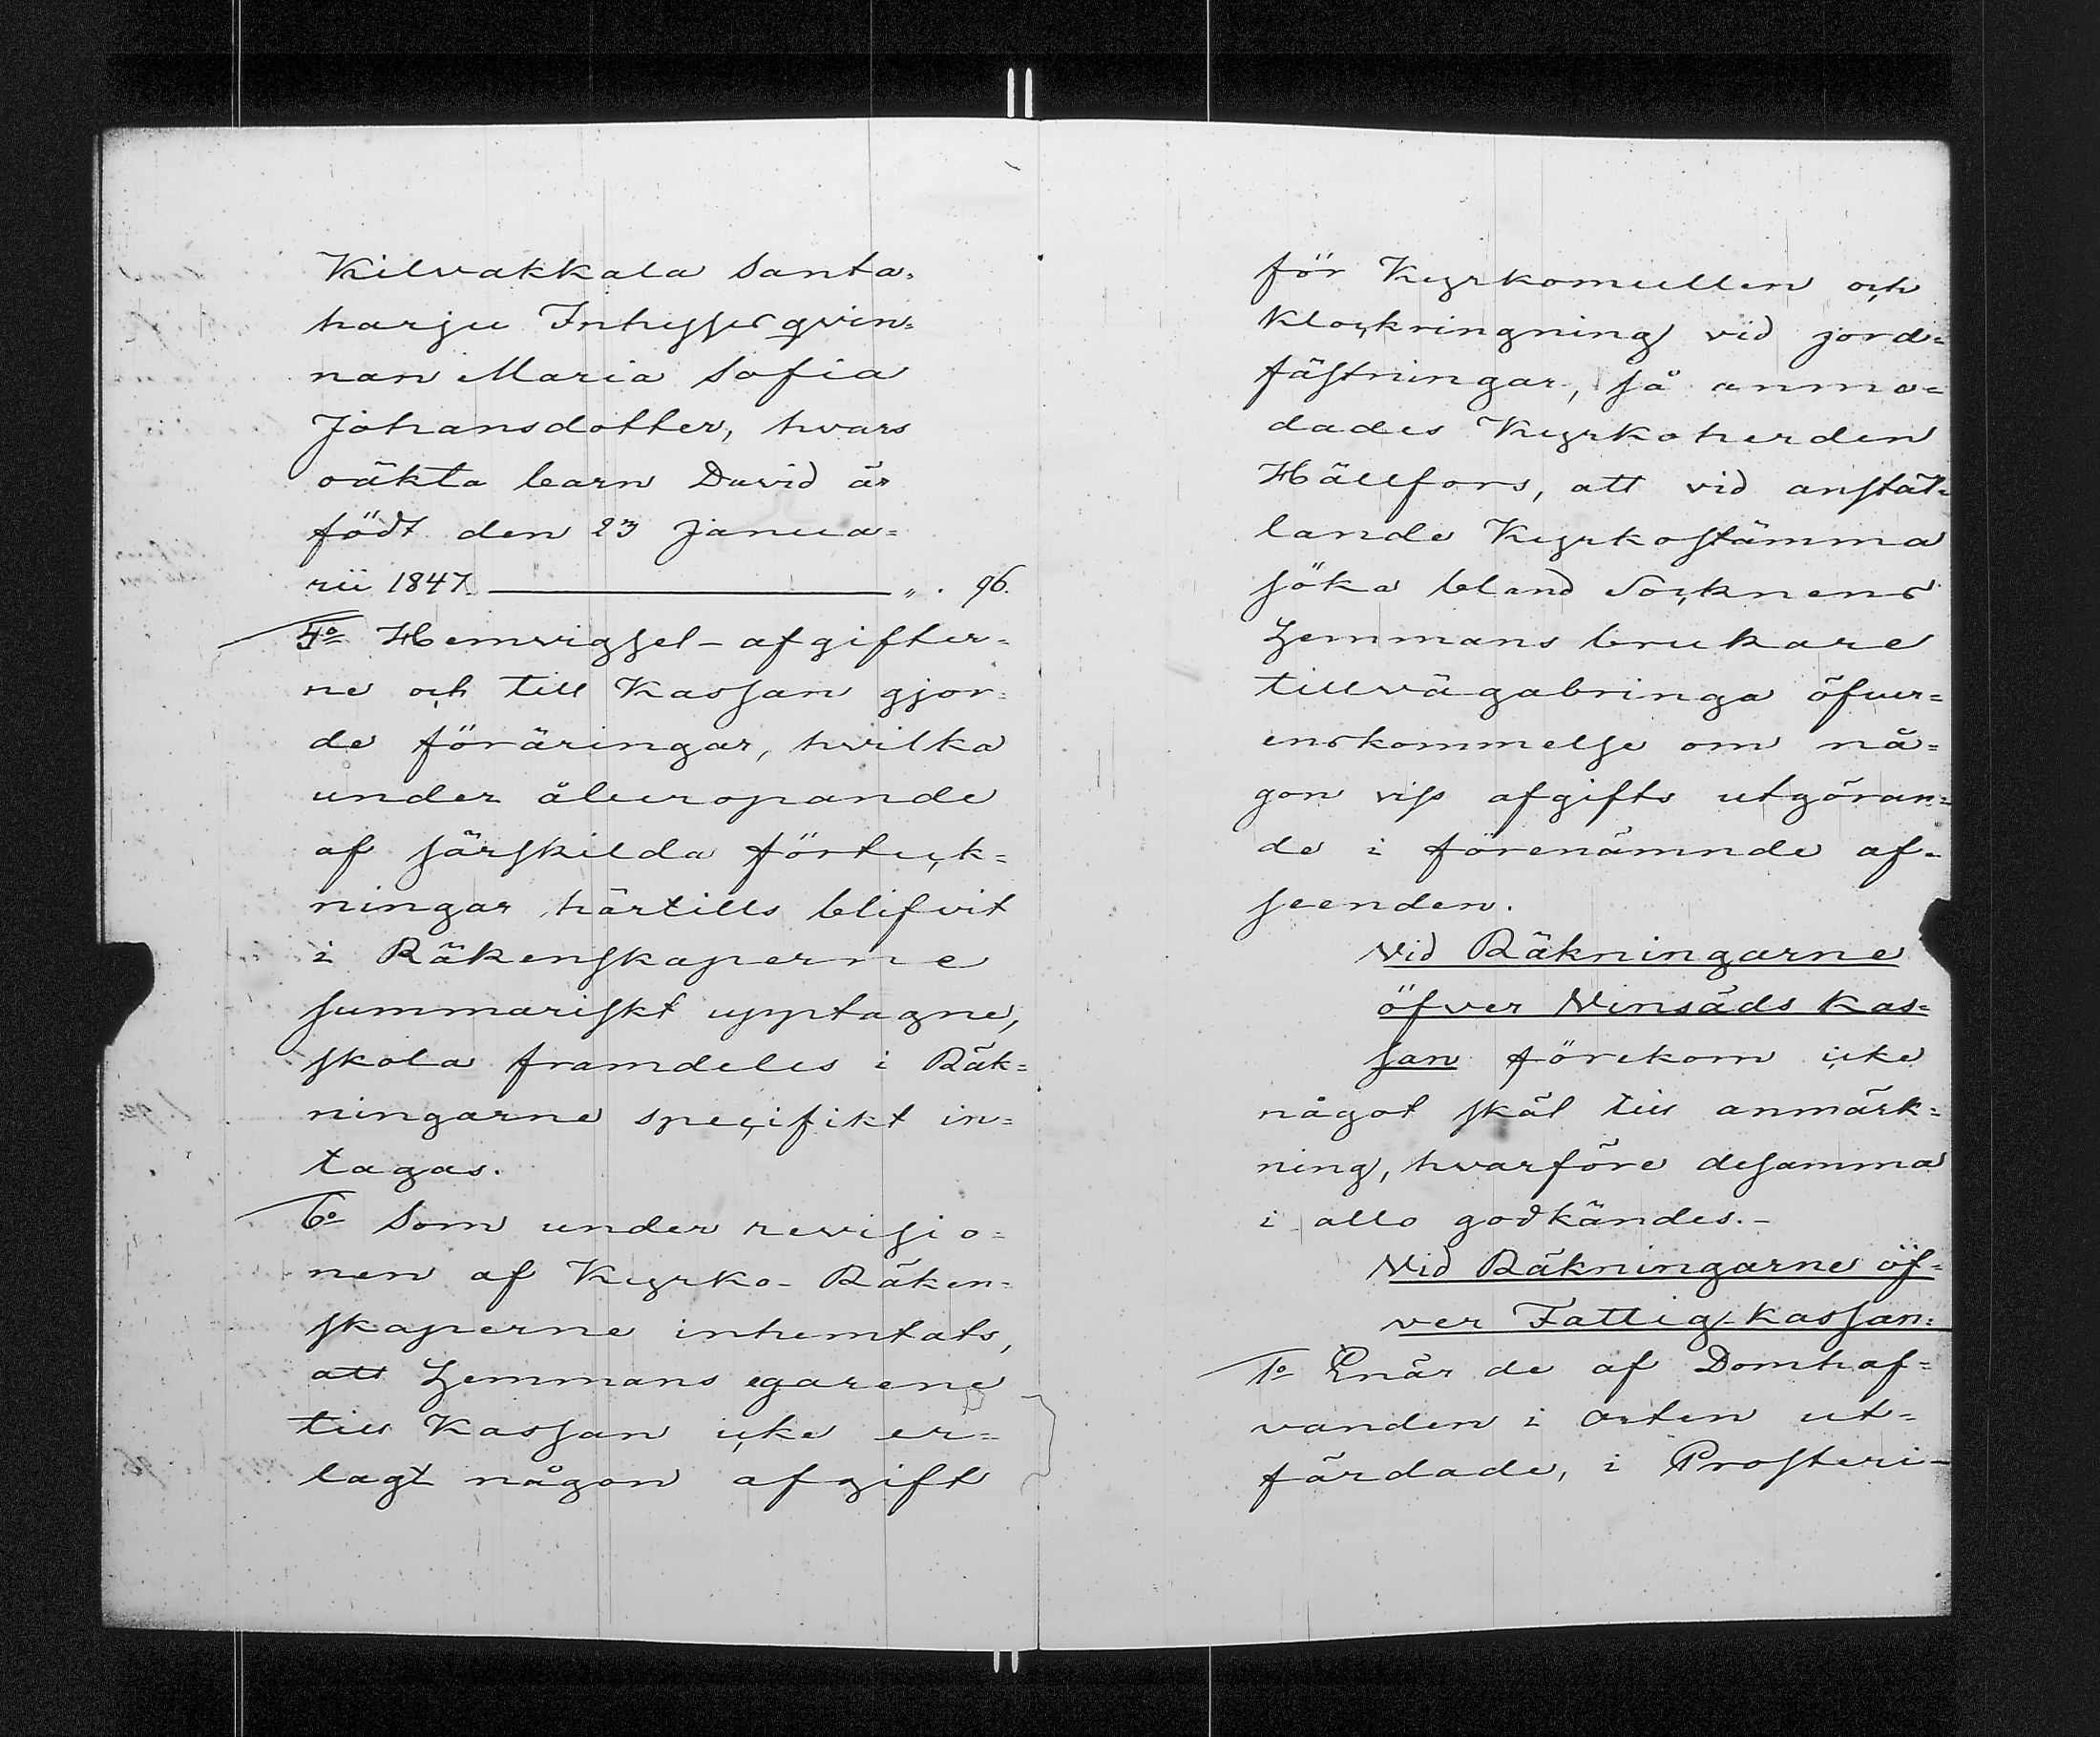 Kilvakkala Santa-
harju Inhyses qvin-
nan Maria Sofia
Johansdotter, hvars
oäkta barn David är
födt den 23 Janua-
rii 1847. „. 96.
5o Hemvigsel-afgifter-
ne och till Kassan gjor-
de föräringar, hvilka
under åberopande
af särskilda förteck-
ningar härtills blifvit
i Räkenskaperne
summariskt upptagne,
skola framdeles i Räk-
ningarne specifikt in-
tagas.
6o Som under revisio-
nen af Kyrko-Räken-
skaperne inhemtats,
att Hemmans egarene
till Kassan icke er-
lagt någon afgift
för Kyrkomullen och
Klockringning vid jord-
fästningar, så anmo-
dades Kyrkoherden
Hällfors, att vid anstäl-
lande Kyrkostämma
söka bland Socknens
Hemmans brukare
tillvägabringa öfver-
enskommelse om nå-
gon viss afgifts utgöran-
de i förenämnde af-
seenden.
Vid Räkningarne
öfver Vinsäds Kas-
san förekom icke
något skäl till anmärk-
ning, hvarföre desamma
i allo godkändes.-
Vid Räkningarne öf-
ver Fattig-Kassan:
1o Enär de af Domhaf-
vanden i Orten ut-
färdade, i Prosteri-